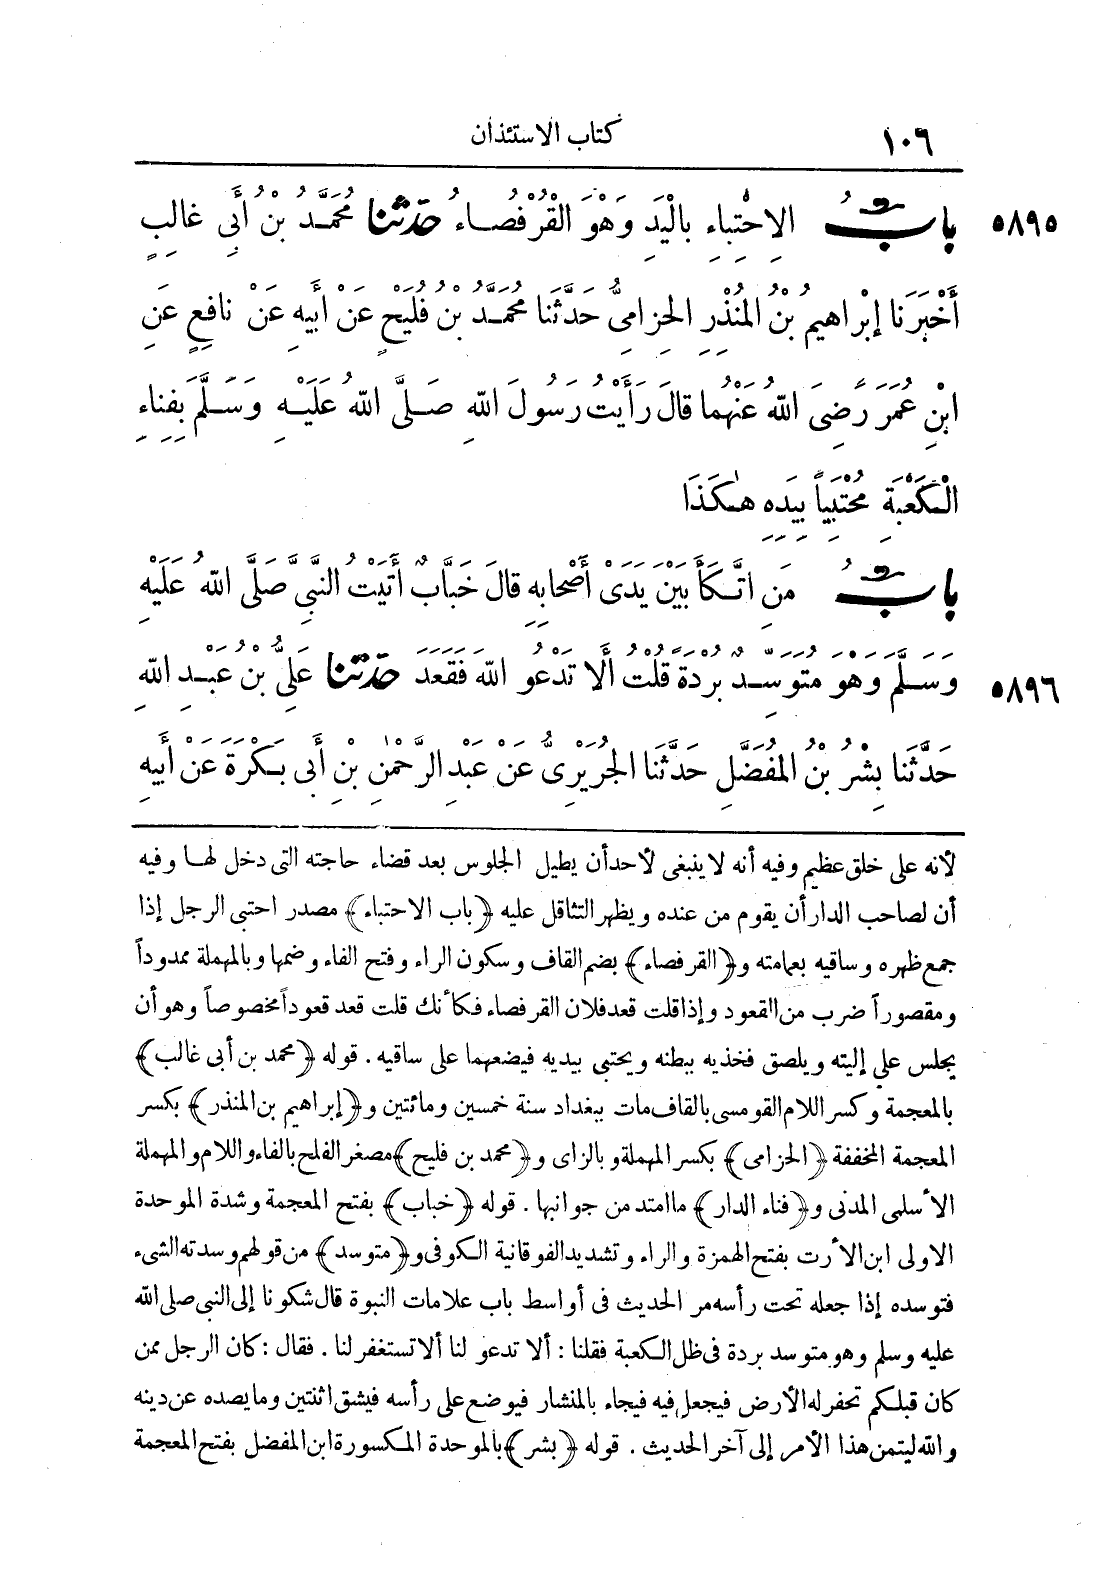 ١٠٦ كتاب الاستئذان
٥٨٩٥ بابُ الِاحْتِبَاءِ بِالْيَدِ وَهْوَ الْقُرْفُصَاءُ حدثنا مُحَمَّدُ بْنُ أَبِي غَالِبٍ
أَخْبَرَنَا إِبْرَاهِيمُ بْنُ الْمُنْذِرِ الْحِزَامِىُّ حَدَّثَنَا مُحَمَّدُ بْنُ فُلَيْحٍ عَنْ أَبِيهِ عَنْ نَافِعٍ عَنِ
ابْنِ عُمَرَ رَضِىَ اللّٰهُ عَنْهُمَا قَالَ رَأَيْتُ رَسُولَ اللّٰهِ صَلَّى اللّٰهُ عَلَيْهِ وَسَلَّمَ بِفِنَاءِ
الْكَعْبَةِ مُحْتَبِياً بِيَدِهِ هٰكَذَا
بابُ مَنِ اتَّكَأَ بَيْنَ يَدَىْ أَصْحَابِهِ قَالَ خَبَّابٌ أَتَيْتُ النَّبِىَّ صَلَّى اللّٰهُ عَلَيْهِ
٥٨٩٦ وَسَلَّمَ وَهْوَ مُتَوَسِّدٌ بُرْدَةً قُلْتُ أَلَا تَدْعُو اللّٰهَ فَقَعَدَ حدثنا عَلِىُّ بْنُ عَبْدِ اللّٰهِ
حَدَّثَنَا بِشْرُ بْنُ الْمُفَضَّلِ حَدَّثَنَا الْجُرَيْرِىُّ عَنْ عَبْدِ الرَّحْمٰنِ بْنِ أَبِى بَكْرَةَ عَنْ أَبِيهِ
لأنه على خلق عظيم وفيه أنه لا ينبغى لأحد أن يطيل الجلوس بعد قضاء حاجته التى دخل لها وفيه
أن لصاحب الدار أن يقوم من عنده ويظهر التثاقل عليه ﴿باب الاحتباء﴾ مصدر احتبى الرجل إذا
جمع ظهره وساقيه بعمامته و﴿القرفصاء﴾ بضم القاف وسكون الراء وفتح الفاء وضمها وبالمهملة ممدوداً
ومقصوراً ضرب من القعود وإذا قلت قعد فلان القرفصاء فكأنك قلت قعد قعوداً مخصوصاً وهو أن
يجلس على إليته ويلصق فخذيه ببطنه ويحتبى بيديه فيضعهما على ساقيه . قوله ﴿محمد بن أبى غالب﴾
بالمعجمة وكسر اللام القومسى بالقاف مات ببغداد سنة خمسين ومائتين و﴿إبراهيم بن المنذر﴾ بكسر
المعجمة المخففة ﴿الحزامى﴾ بكسر المهملة وبالزاى و﴿محمد بن فليح﴾ مصغر الفلح بالفاء واللام والمهملة
الأسلمى المدنى و﴿فناء الدار﴾ ما امتد من جوانبها . قوله ﴿خباب﴾ بفتح المعجمة وشدة الموحدة
الاولى ابن الأرت بفتح الهمزة والراء وتشديد الفوقانية الكوفى و﴿متوسد﴾ من قولهم وسدته الشىء
فتوسده إذا جعله تحت رأسه مر الحديث فى أواسط باب علامات النبوة قال شكونا إلى النبى صلى الله
عليه وسلم وهو متوسد بردة فى ظل الكعبة فقلنا : ألا تدعو لنا ألا تستغفر لنا . فقال : كان الرجل ممن
كان قبلكم تحفر له الأرض فيجعل فيه فيجاء بالمنشار فيوضع على رأسه فيشق اثنتين وما يصده عن دينه
والله ليتمن هذا الأمر إلى آخر الحديث . قوله ﴿بشر﴾ بالموحدة المكسورة ابن المفضل بفتح المعجمة